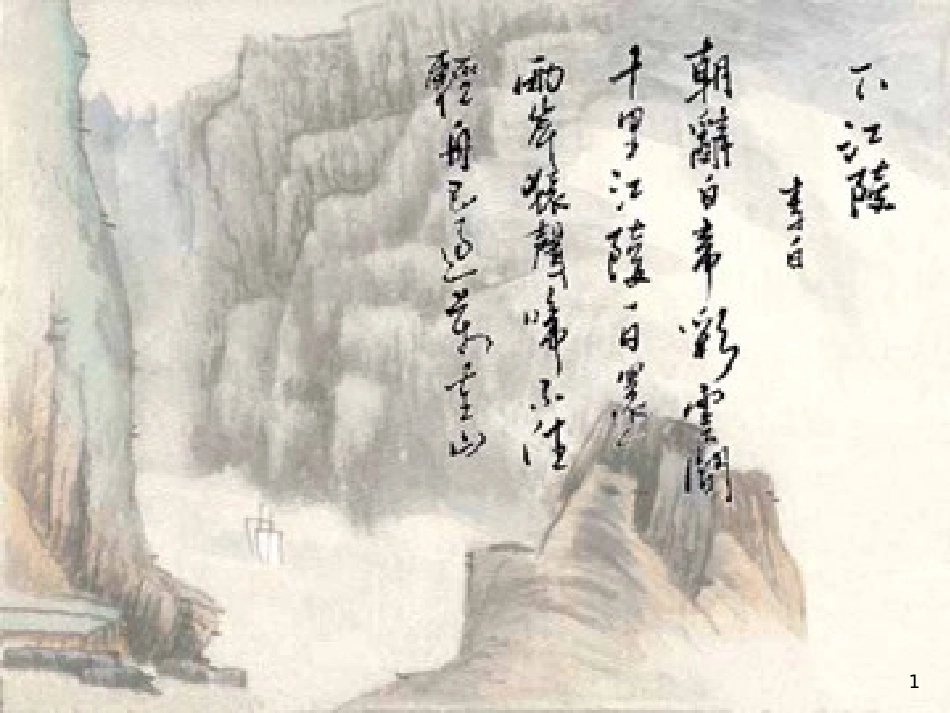 下江陵
李白
朝辭白帝彩雲間
千里江陵一日還
兩岸猿聲啼不住
輕舟已過萬重山
1